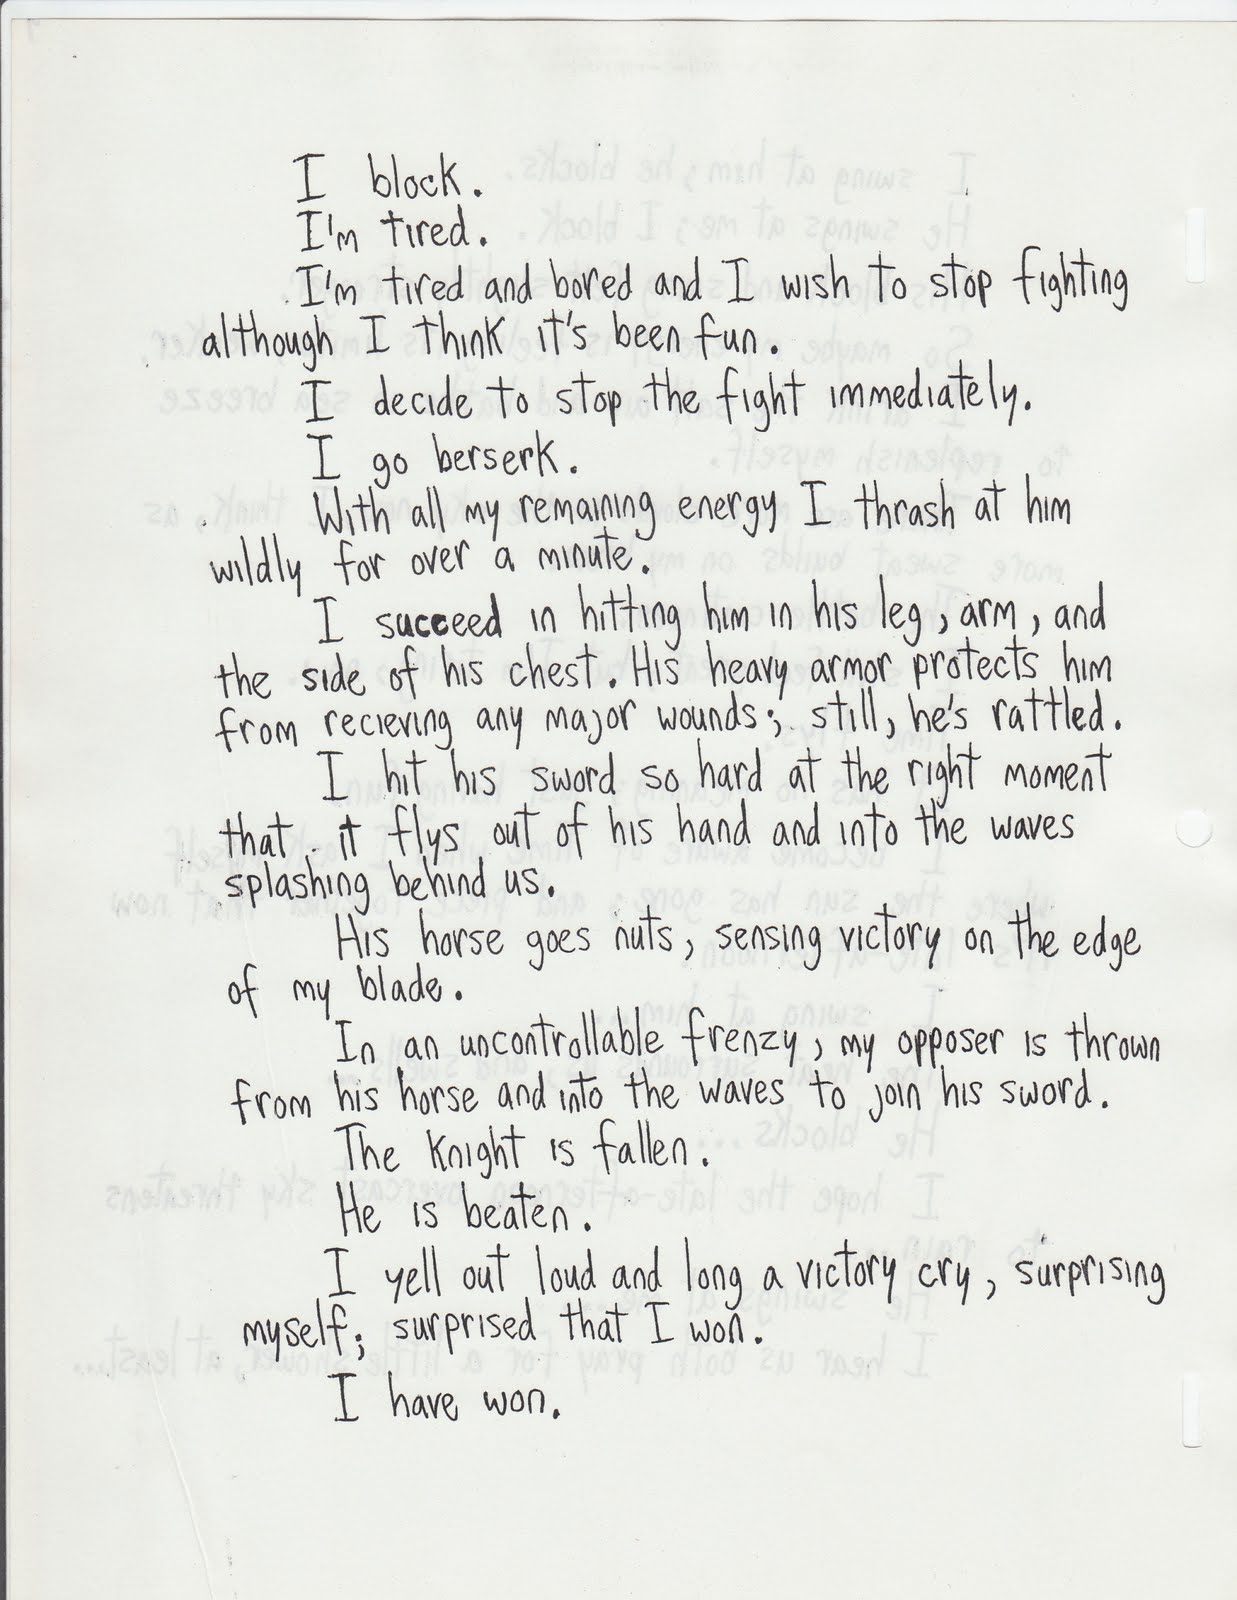 I block.
I'm tired.
I'm tired and bored and I wish to stop fighting
although I think it's been fun.
I decide to stop the fight immediately.
I go berserk.
With all my remaining energy I thrash at him
wildly for over a minute.
I succeed in hitting him in his leg, arm, and
the side of his chest. His heavy armor protects him
from recieving any major wounds; still, he's rattled.
I hit his sword so hard at the right moment
that it flys out of his hand and into the waves
splashing behind us.
His horse goes nuts, sensing victory on the edge
of my blade.
In an uncontrollable frenzy, my opposer is thrown
from his horse and into the waves to join his sword.
The Knight is fallen.
He is beaten.
I yell out loud and long a victory cry, surprising
myself; surprised that I won.
I have won.